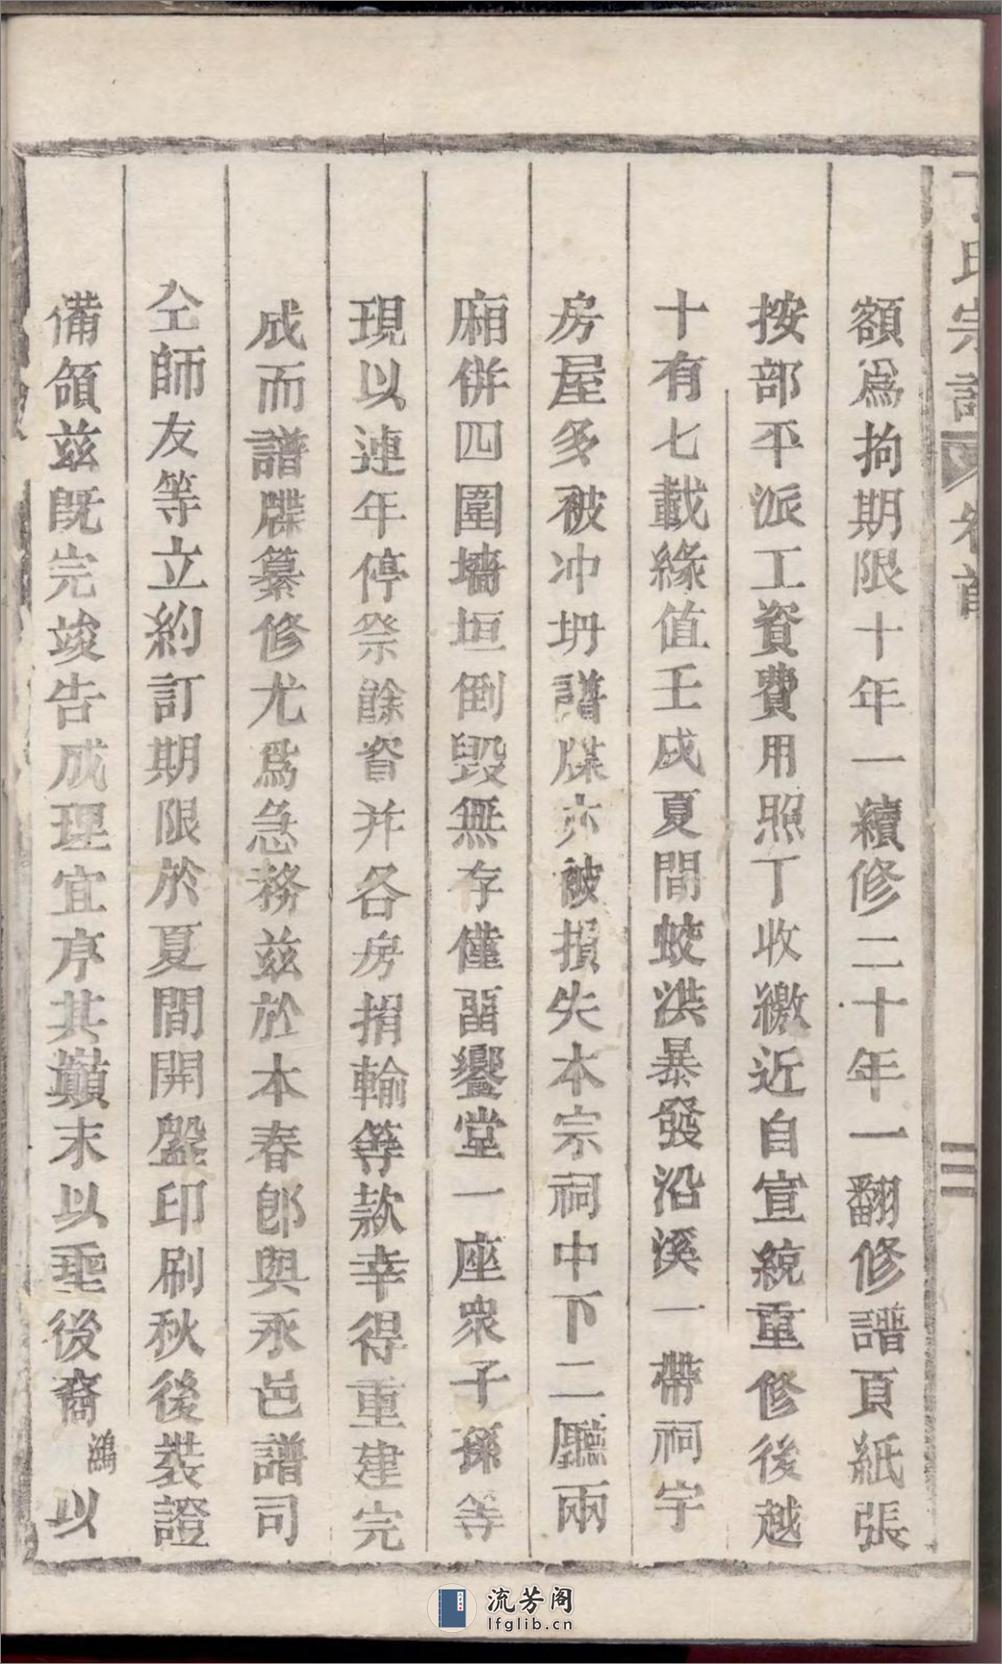 氏宗譜 卷首 三
額爲拘期限十年一續修二十年一翻修譜頁紙張
按部平派工資費用照丁收繳近自宣統重修後越
十有七載緣值壬戌夏間蛟洪暴發沿溪一帶祠宇
房屋多被冲坍譜牒亦被損失本宗祠中下二廳兩
廂併四圍墻垣倒毀無存僅畱饗堂一座衆子孫等
現以連年停祭餘資并各房捐輸等款幸得重建完
成而譜牒纂修尤爲急務兹於本春郎與永邑譜司
仝師友等立約訂期限於夏間開盤印刷秋後裝證
備領兹既完竣告成理宜序其巔末以垂後裔鴻以
流芳阁
lfglib.cn